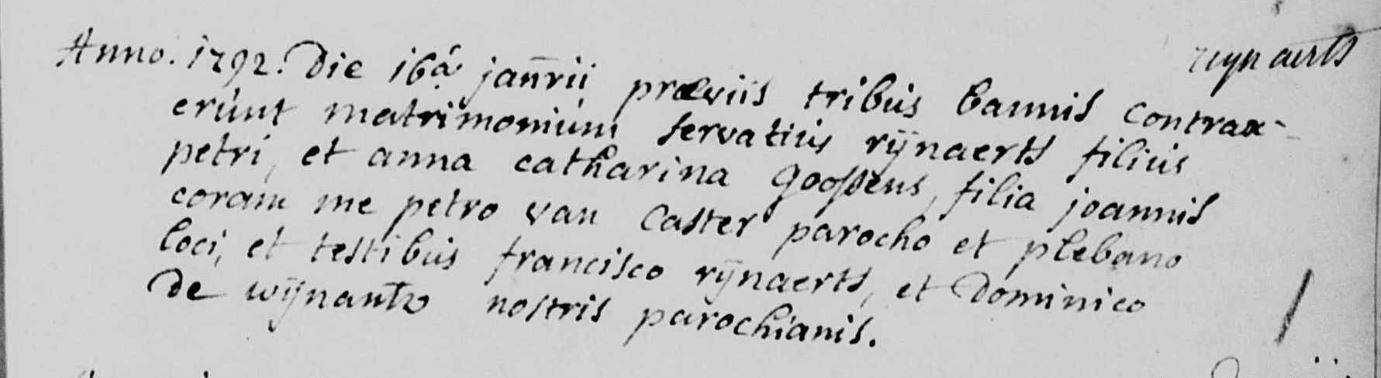 rijnaerts
Anno. 1792. Die 16â jan̄rii præviis tribus bannis contrax-
erunt matrimonium servatius rijnaerts filius
petri, et anna catharina goossens, filia joannis
coram me petro van Caster parocho et plebano
loci, et testibus francisco rijnaerts, et Dominico
De wijnants nostris parochianis.